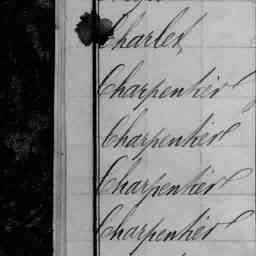 Charles,
Charpentier
Charpentier
Charpentier
Charpentier